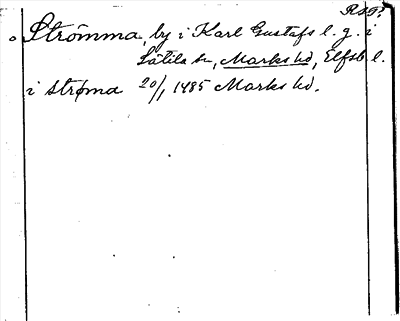 RAP?
Strömma, by i Karl Gustafs l. g. i
Sätila sn, Marks hd, Elfsb l.
i strøma 20/1 1485 Marks hd.